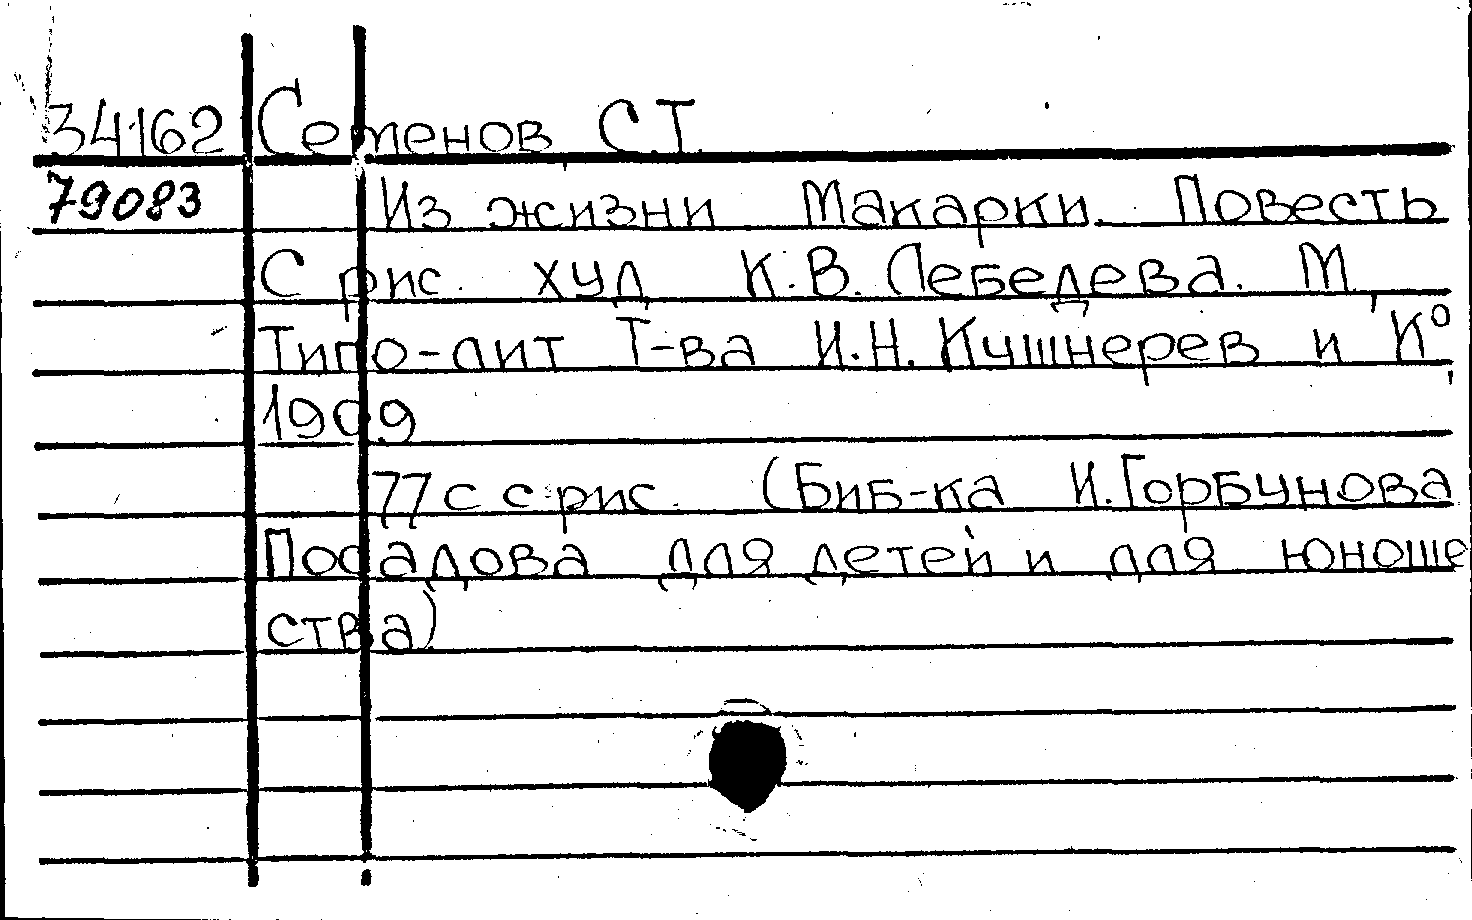 34162 Семенов С.Т.
79083 Из жизни Макарки. Повесть
С рис. худ К.В. Лебедева. М,
Типо-лит Т-ва И.Н. Кушнерев и Кº,
1909
77 с с рис. (Биб-ка И.Горбунова
Посадова для детей и для юноше
ства)